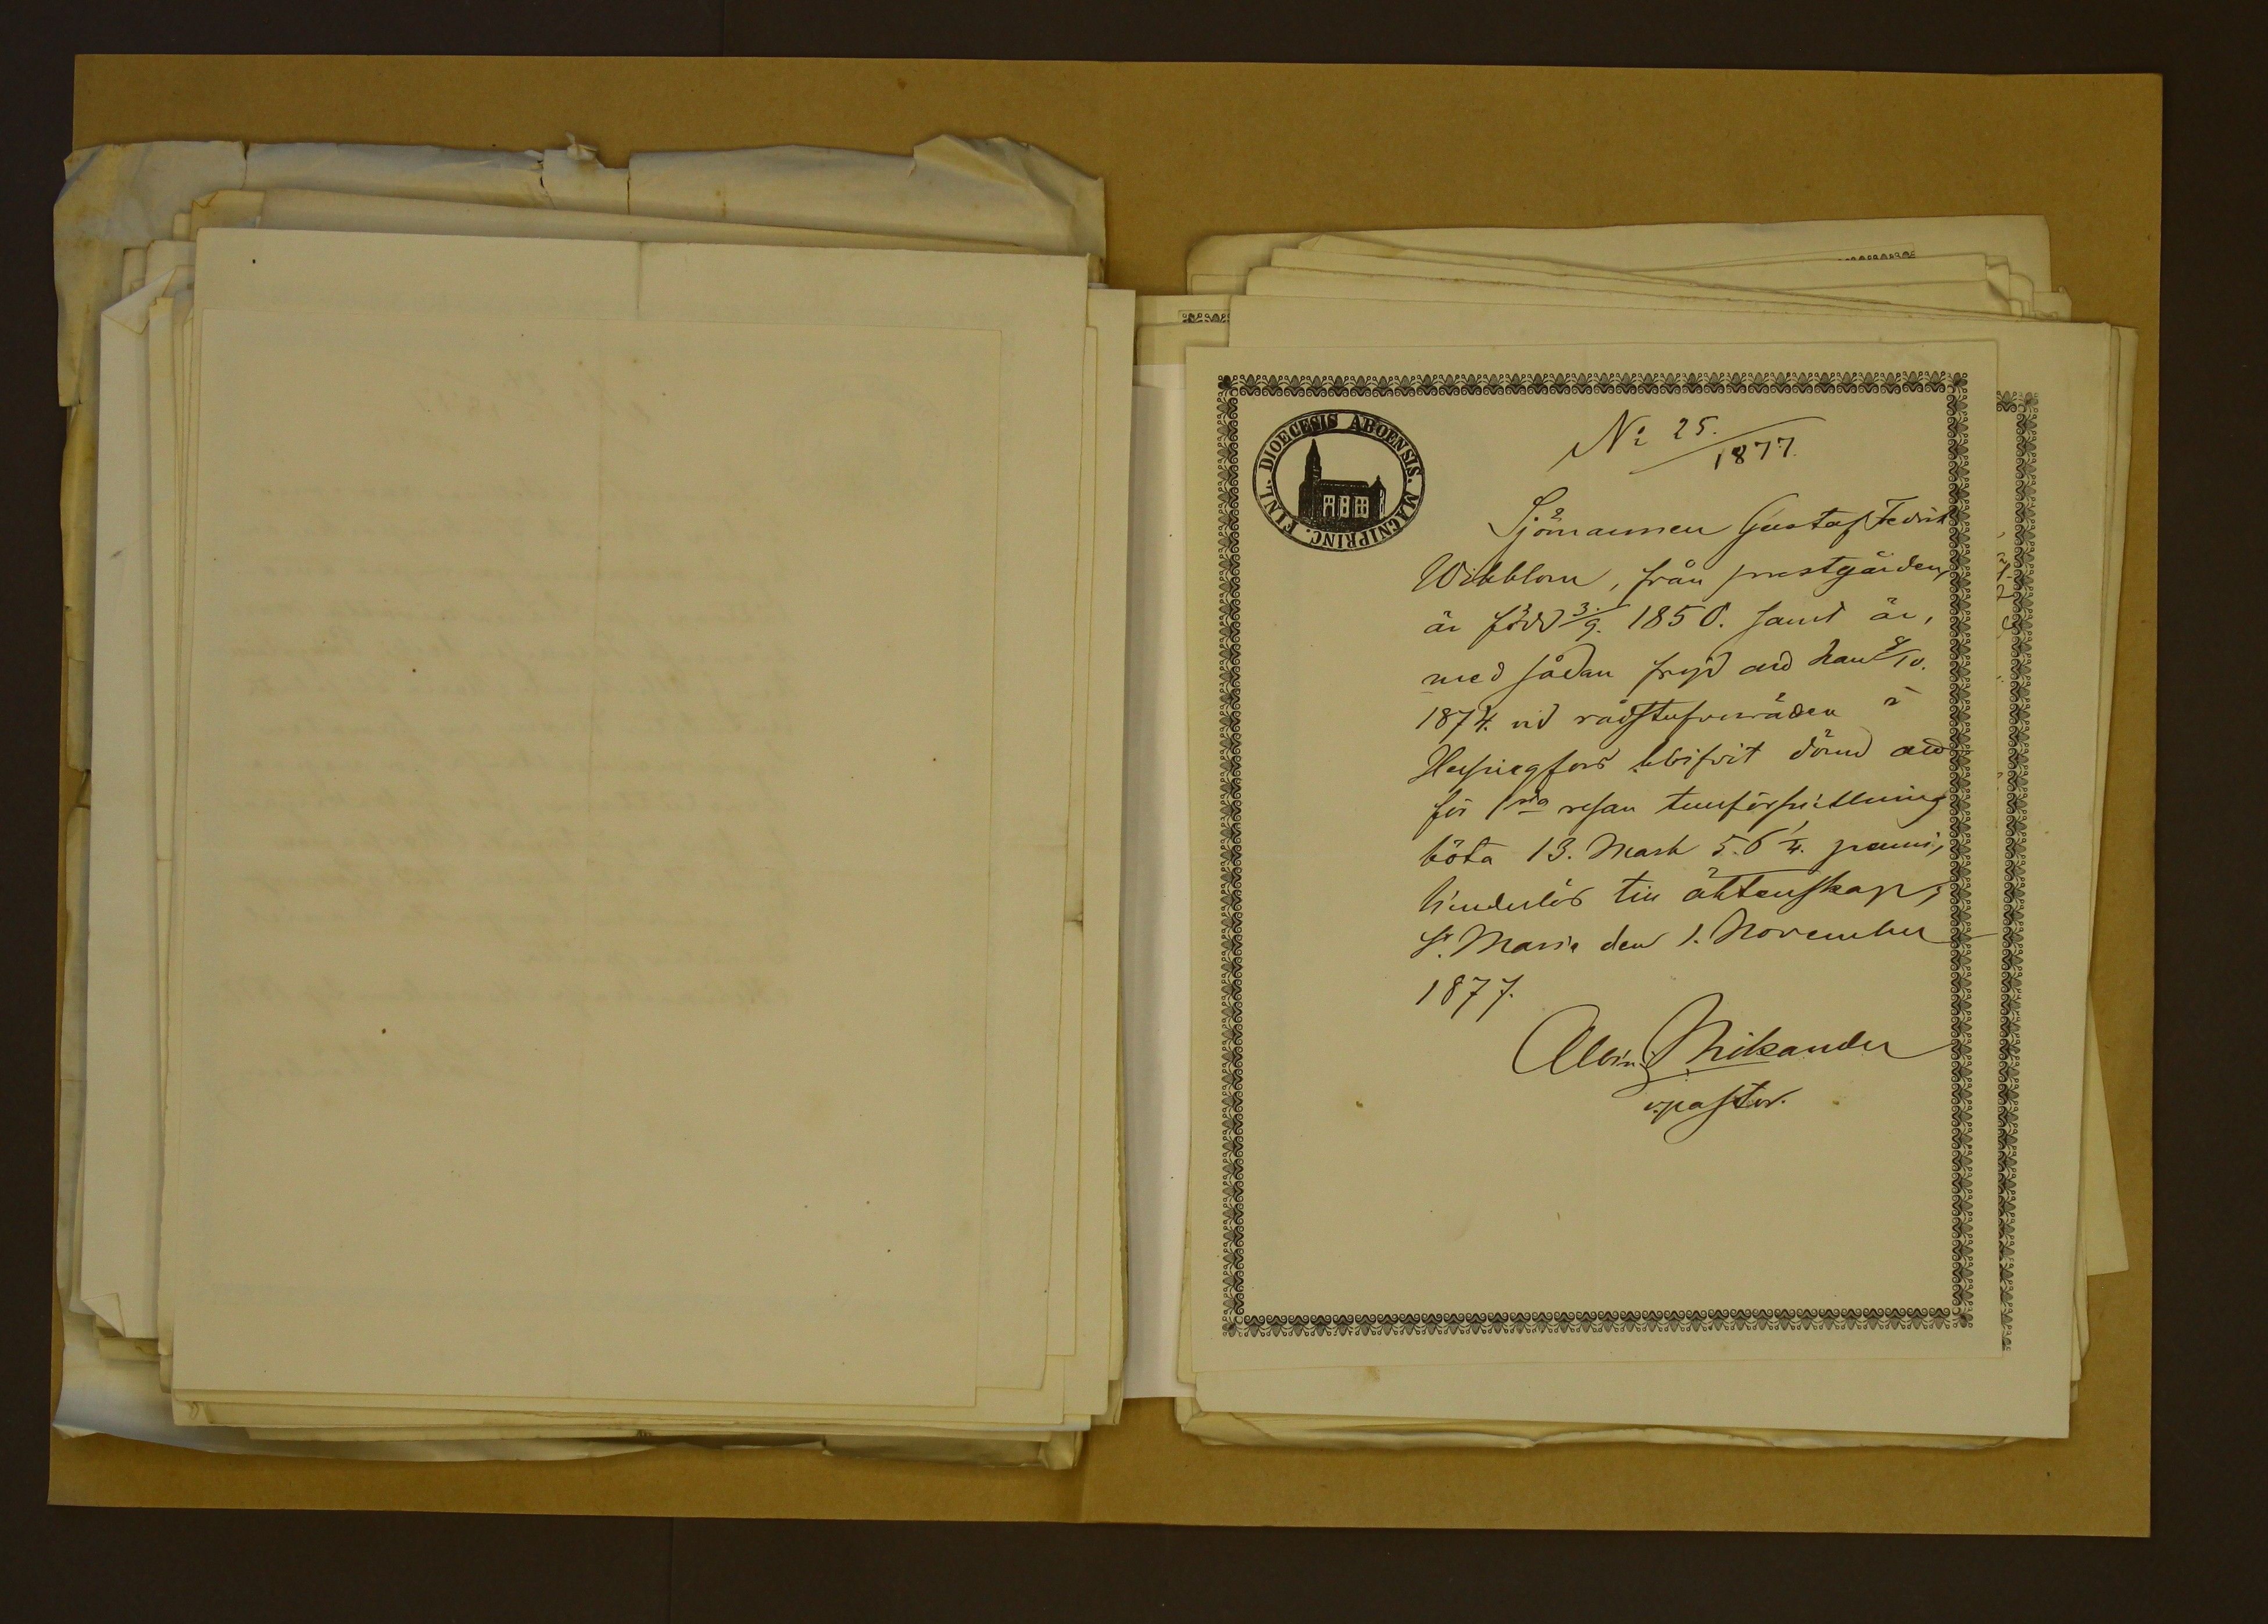 DIOECESIS ABOENSIS. MAGNIPRINC. FINL.
No 25./1877.
Sjömannen Gustaf Fedrik
Wikblom, från prestgården,
är född 3./9. 1850. samt är,
med sådan frejd att han /10.
1874. vid rådstufvurätten i
Helsingfors blifvit dömd att
för 1sta resan
böta 13. Mark 56 1/4. penni,
hinderlös till äktenskap;
St. Marie den 1. November
1877.
Albin Nikander
v.pastor.